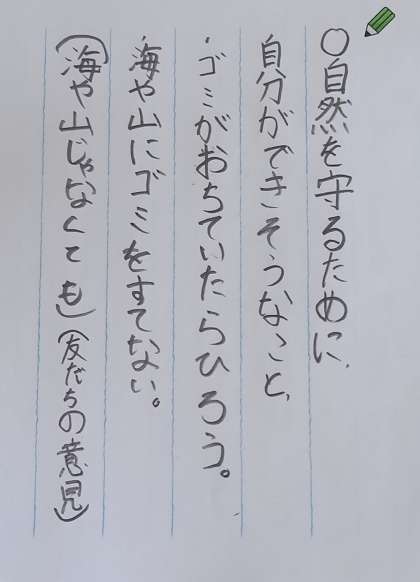 ○自然を守るために、
自分ができそうなこと、
・ゴミがおちていたらひろう。
・海や山にゴミをすてない。
(海や山じゃなくても)(友だちの意見)